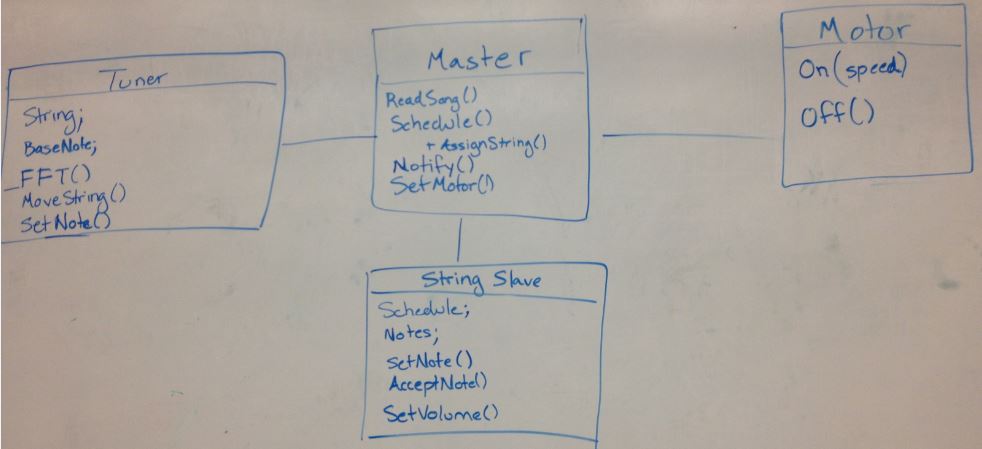 Tuner
String;
BaseNote;
_FFT()
MoveString()
SetNote()
Master
ReadSong()
Schedule()
+ AssignString()
Notify()
SetMotor()
Motor
On(speed)
Off()
String Slave
Schedule;
Notes;
SetNote()
AcceptNote()
SetVolume()